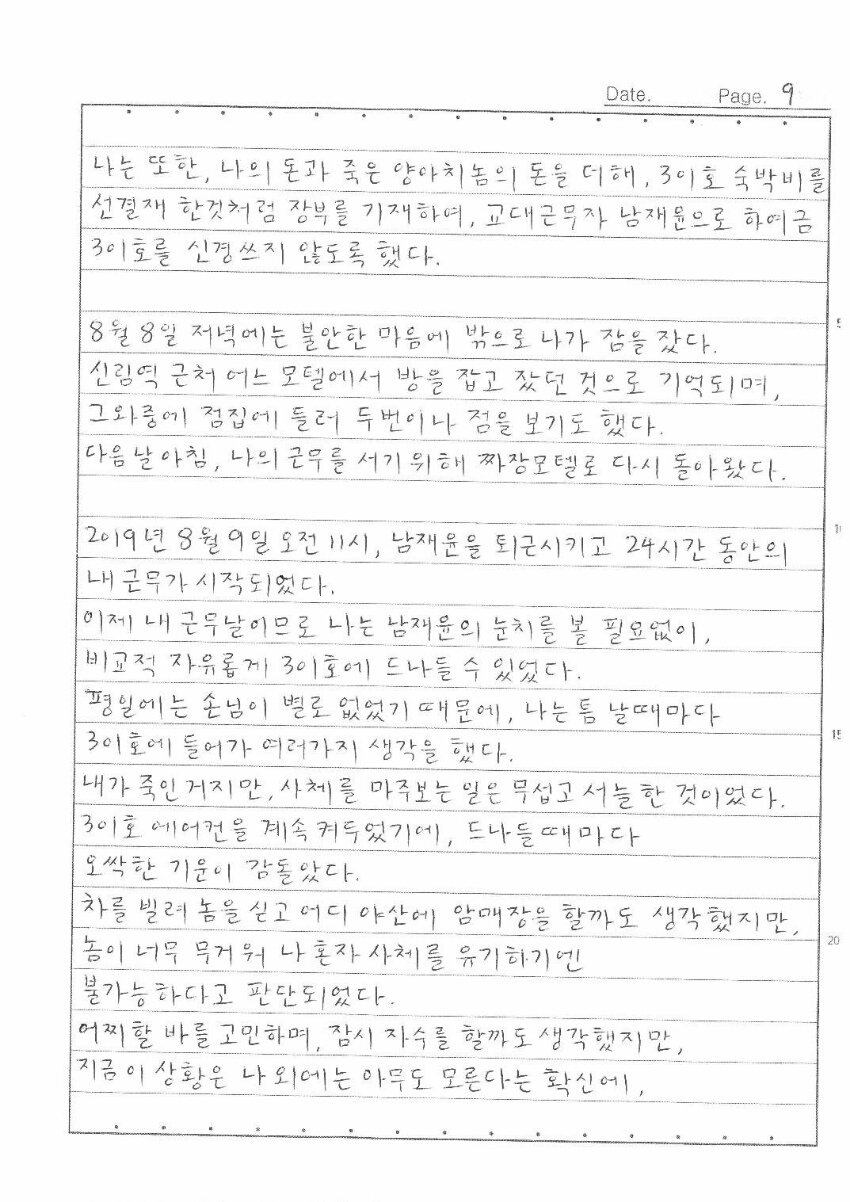 Date. Page. 9
나는 또한, 나의 돈과 죽은 양아치놈의 돈을 더해, 301호 숙박비를
선결재 한것처럼 장부를 기재하여, 교대근무자 남재윤으로 하여금
301호를 신경쓰지 않도록 했다.
8월 8일 저녁에는 불안한 마음에 밖으로 나가 잠을 잤다.
신림역 근처 어느 모텔에서 방을 잡고 잤던 것으로 기억되며,
그와중에 점집에 들러 두번이나 점을 보기도 했다.
다음날 아침, 나의 근무를 서기 위해 짜장모텔로 다시 돌아왔다.
2019년 8월 9일 오전 11시, 남재윤을 퇴근시키고 24시간 동안의
내 근무가 시작되었다.
이제 내 근무날이므로 나는 남재윤의 눈치를 볼 필요없이,
비교적 자유롭게 301호에 드나들 수 있었다.
평일에는 손님이 별로 없었기 때문에, 나는 틈 날때마다
301호에 들어가 여러가지 생각을 했다.
내가 죽인 거지만, 사체를 마주보는 일은 무섭고 서늘한 것이었다.
301호 에어컨을 계속 켜두었기에, 드나들때마다
오싹한 기운이 감돌았다.
차를 빌려 놈을 싣고 어디 야산에 암매장을 할까도 생각했지만,
놈이 너무 무거워 나 혼자 사체를 유기하기엔
불가능하다고 판단되었다.
어찌할 바를 고민하며, 잠시 자수를 할까도 생각했지만,
지금 이 상황은 나 외에는 아무도 모른다는 확신에,
5
10
15
20